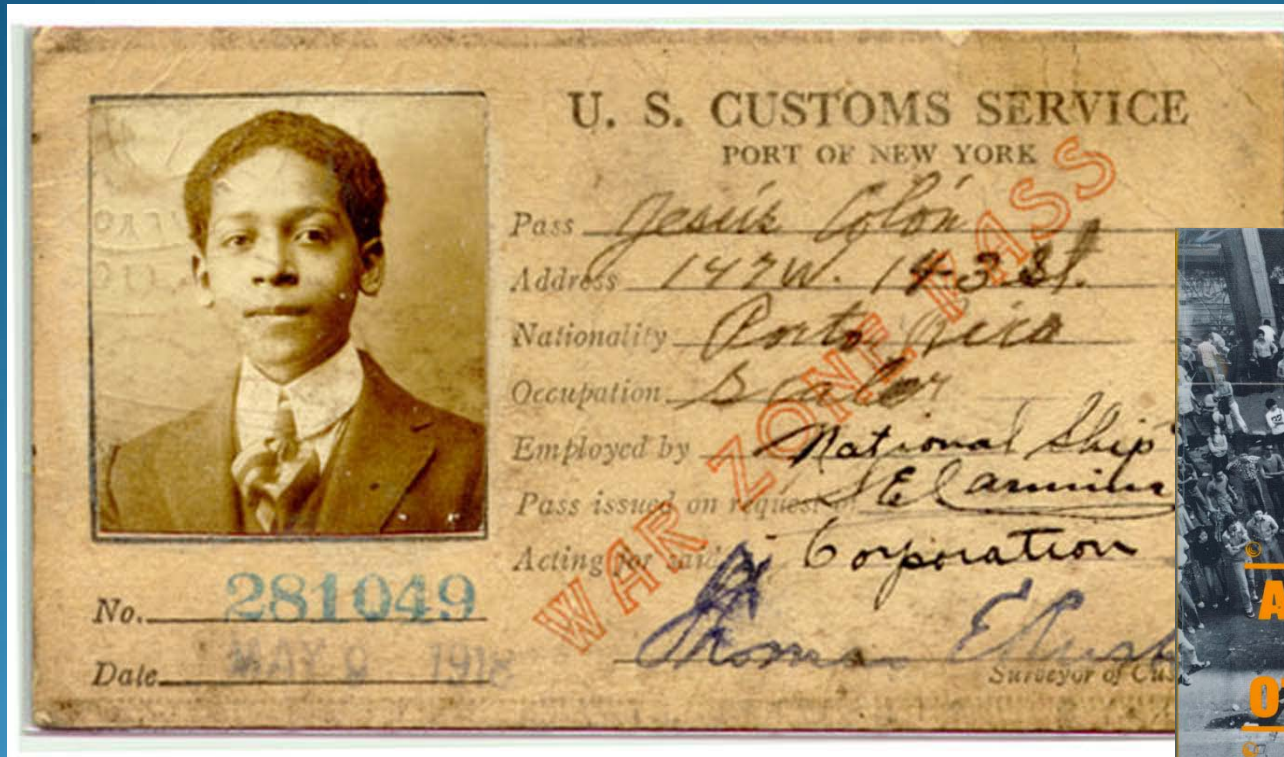 U. S. CUSTOMS SERVICE
PORT OF NEW YORK
Pass Jesús Colón
Address 147 W. 143 St.
Nationality Porto Rico
Occupation
Employed by National Ship
Pass issued on request of
Acting for said Corporation
No. 281049
Date MAY 9 1918
Thomas E Rush
Surveyor of Cus
WAR ZONE PASS
A
O